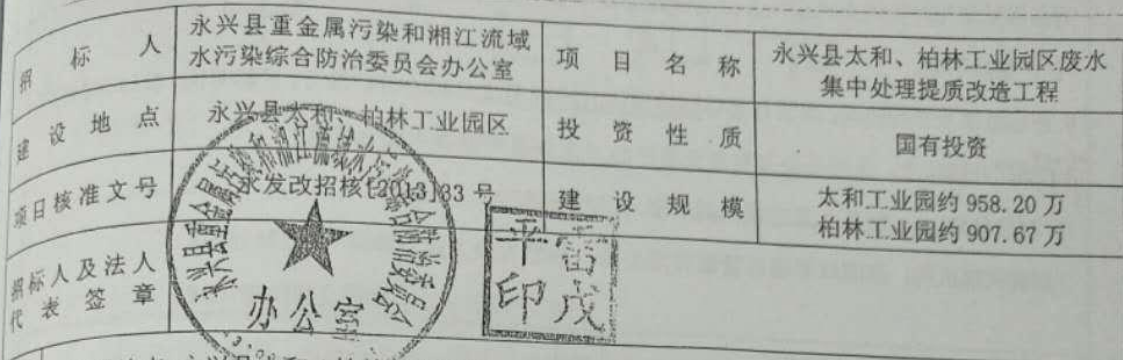 招标人
永兴县重金属污染和湘江流域
水污染综合防治委员会办公室
项目名称
永兴县太和、柏林工业园区废水
集中处理提质改造工程
建设地点
永兴县太和、柏林工业园区
投资性质
国有投资
项目核准文号
永发改招核[2013]33号
建设规模
太和工业园约958.20万
柏林工业园约907.67万
招标人及法人
代表签章
永兴县重金属污染和湘江流域水污染综合防治委员会
办公室
平雷
印戊